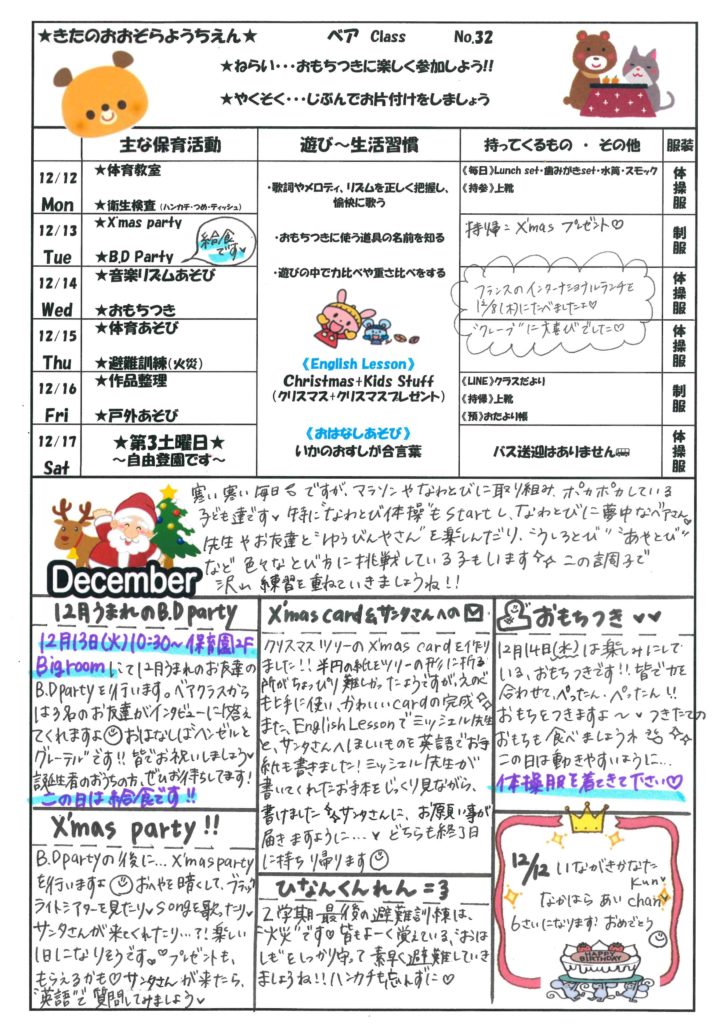 ★きたのおおぞらようちえん★
ベア Class No.32
★ねらい・・・おもちつきに楽しく参加しよう!!
★やくそく・・・じぶんでお片付けをしましょう
主な保育活動
遊び～生活習慣
持ってくるもの ・ その他
服装
12/12
Mon
★体育教室
★衛生検査（ハンカチ・つめ・ティッシュ）
《毎日》Lunch set・歯みがきset・水筒・スモック
《持参》上靴
体操服
12/13
Tue
★X'mas party
★B.D Party
給食
です♥
持帰＝X'mas プレゼント♡
制服
12/14
Wed
★音楽リズムあそび
★おもちつき
フランスのインターナショナルランチを
12/8(木)にたべました
"クレープ"に大喜びでした♡
体操服
12/15
Thu
★体育あそび
★避難訓練（火災）
体操服
12/16
Fri
★作品整理
★戸外あそび
《LINE》クラスだより
《持帰》上靴
《預》おたより帳
制服
12/17
Sat
★第3土曜日★
～自由登園です～
バス送迎はありません
体操服
・歌詞やメロディ、リズムを正しく把握し、
愉快に歌う
・おもちつきに使う道具の名前を知る
・遊びの中で力比べや重さ比べをする
《English Lesson》
Christmas+Kids Stuff
（クリスマス+クリスマスプレゼント）
《おはなしあそび》
いかのおすしが合言葉
December
寒い寒い毎日ですが、マラソンやなわとびに取り組み、ポカポカしている
子ども達です♥ 特に"なわとび体操"もStartし、なわとびに夢中なベアさん♥
先生やお友達と"ゆうびんやさん"を楽しんだり、"うしろとび""あやとび"
など 色々なとび方に挑戦している子もいます☆ この調子で
沢山 練習を重ねていきましょうね!!
12月うまれのB.D party
12月13日(火)10:30～保育園2F
Big roomにて12月うまれのお友達の
B.D partyを行います。ベアクラスから
は3名のお友達がインタビューに答え
てくれますよ☺おはなしは"ヘンゼルと
グレーテル"です!! 皆でお祝いしましょう♥
誕生者のおうちの方、ぜひお待ちしてます!
この日は給食です!!
X'mas party !!
B.D partyの後に… X'mas party
を行いますよ☺おへやを暗くして、ブラック
ライトシアターを見たり♥songを歌ったり♥
サンタさんが来てくれたり…?! 楽しい
1日になりそうです。♡プレゼントも、
もらえるかも♡サンタさんが来たら、
"英語"で質問してみましょう♥
X'mas card&サンタさんへの✉
クリスマスツリーのX'mas cardを作り
ました!! 半円の紙をツリーの形に折る
所がちょっぴり難しかったようですが、えのぐ
も上手に使い、かわいいcardの完成☆
また、English Lessonでミッシェル先生
と、サンタさんへほしいものを英語でお手
紙も書きました! ミッシェル先生が
書いてくれたお手本をじっくり見ながら、
書けました☆サンタさんに、お願い事が
届きますように…♥ どちらも終了日
に持ち帰ります☺
ひなんくんれん=3
2学期最後の避難訓練は、
"火災"です♥皆もよーく覚えている、"おは
しも"をしっかり守って素早く避難していき
ましょうね!! ハンカチも忘れずに♡
おもちつき♥♥
12月14日(水)は楽しみにして
いる、おもちつきです!! 皆で力を
合わせて、ぺったん・ぺったん!!
おもちをつきますよ～♥つきたての
おもちも食べましょうネ
この日は動きやすいように…
体操服を着てきて下さい♡
12/12 いながきかなた
kun
なかはら あい chan
6さいになります! おめでとう☺
HAPPY
BIRTHDAY